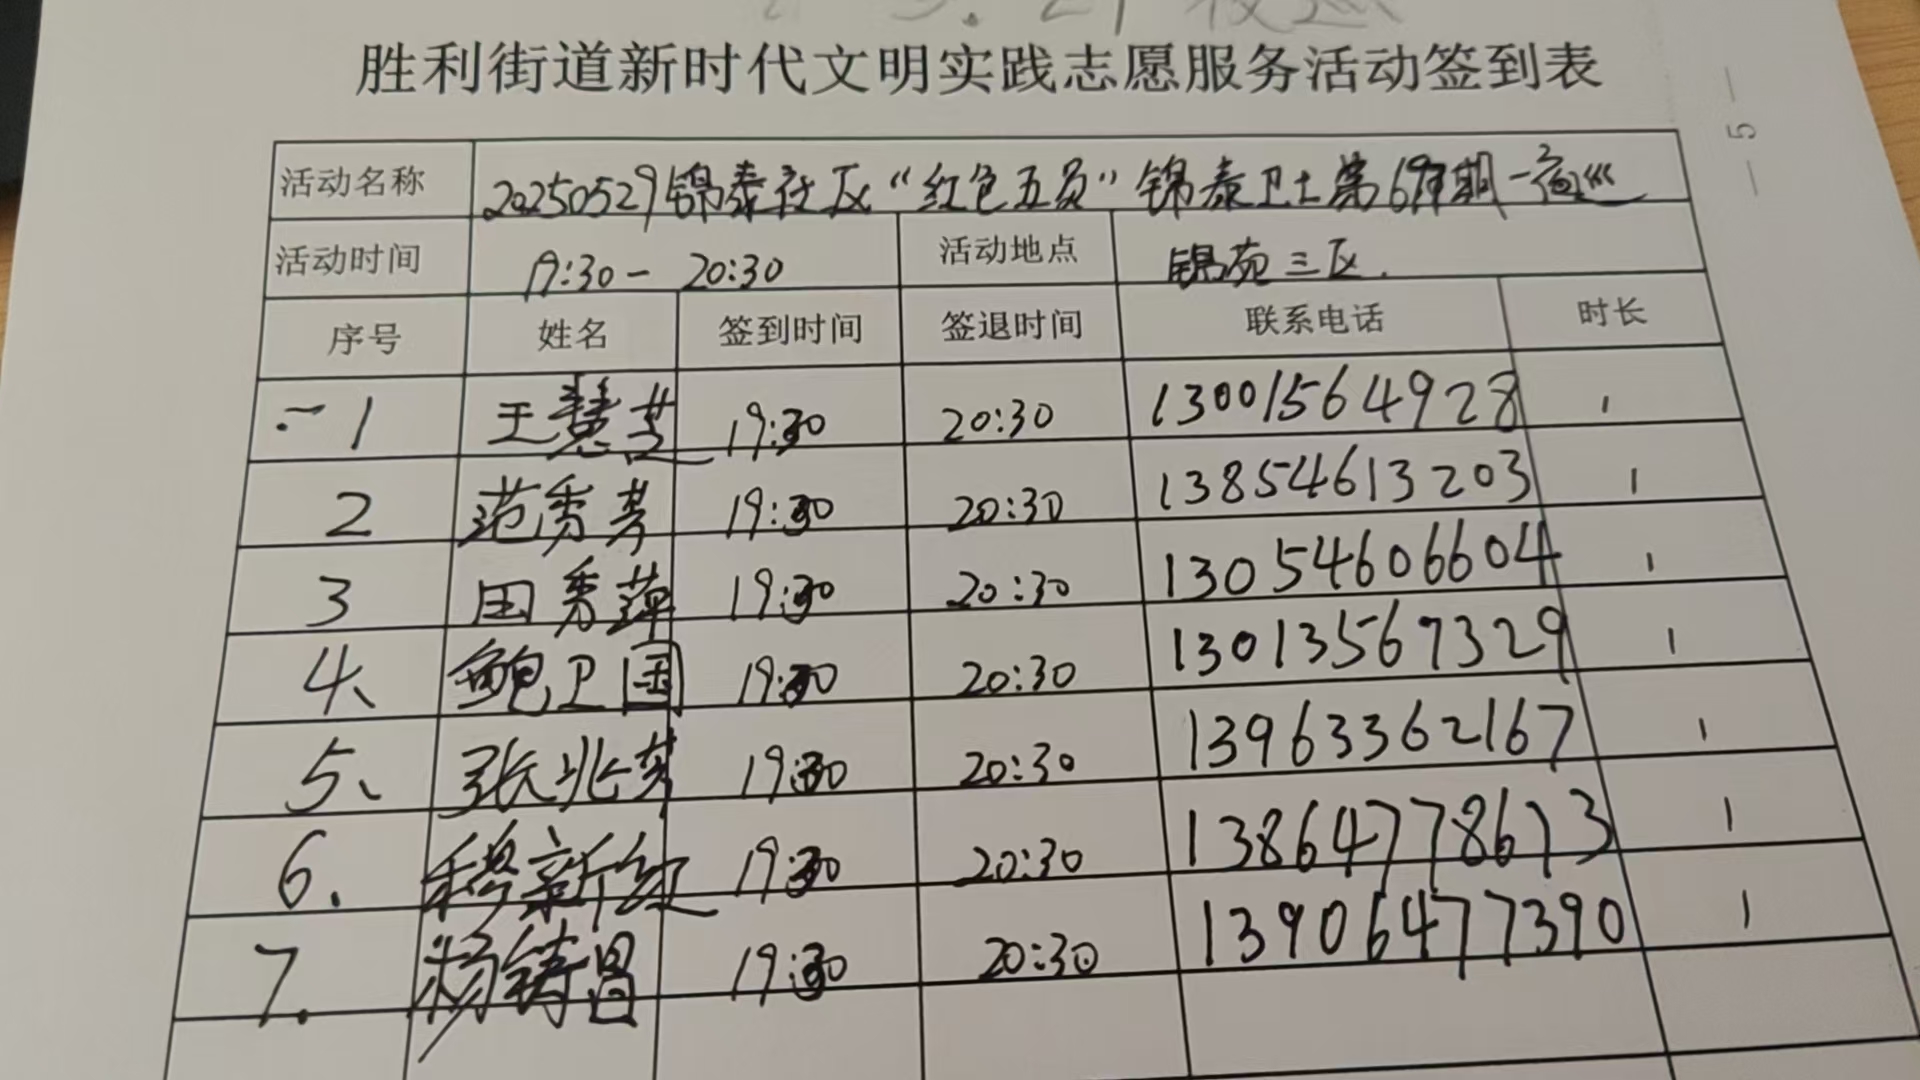 胜利街道新时代文明实践志愿服务活动签到表
— 5 —
活动名称 20250529锦泰社区“红色五员”锦泰卫士第 期—夜巡
活动时间 19:30— 20:30 活动地点 锦苑三区.
序号 姓名 签到时间 签退时间 联系电话 时长
1 王慧芝 19:30 20:30 13001564928 1
2 范秀芳 19:30 20:30 13854613203 1
3 田秀萍 19:30 20:30 13054606604 1
4、 鲍卫国 19:30 20:30 13013567329 1
5、 张兆芳 19:30 20:30 13963362167 1
6. 穆新红 19:30 20:30 13864778673 1
7. 杨铸昌 19:30 20:30 13906477390 1